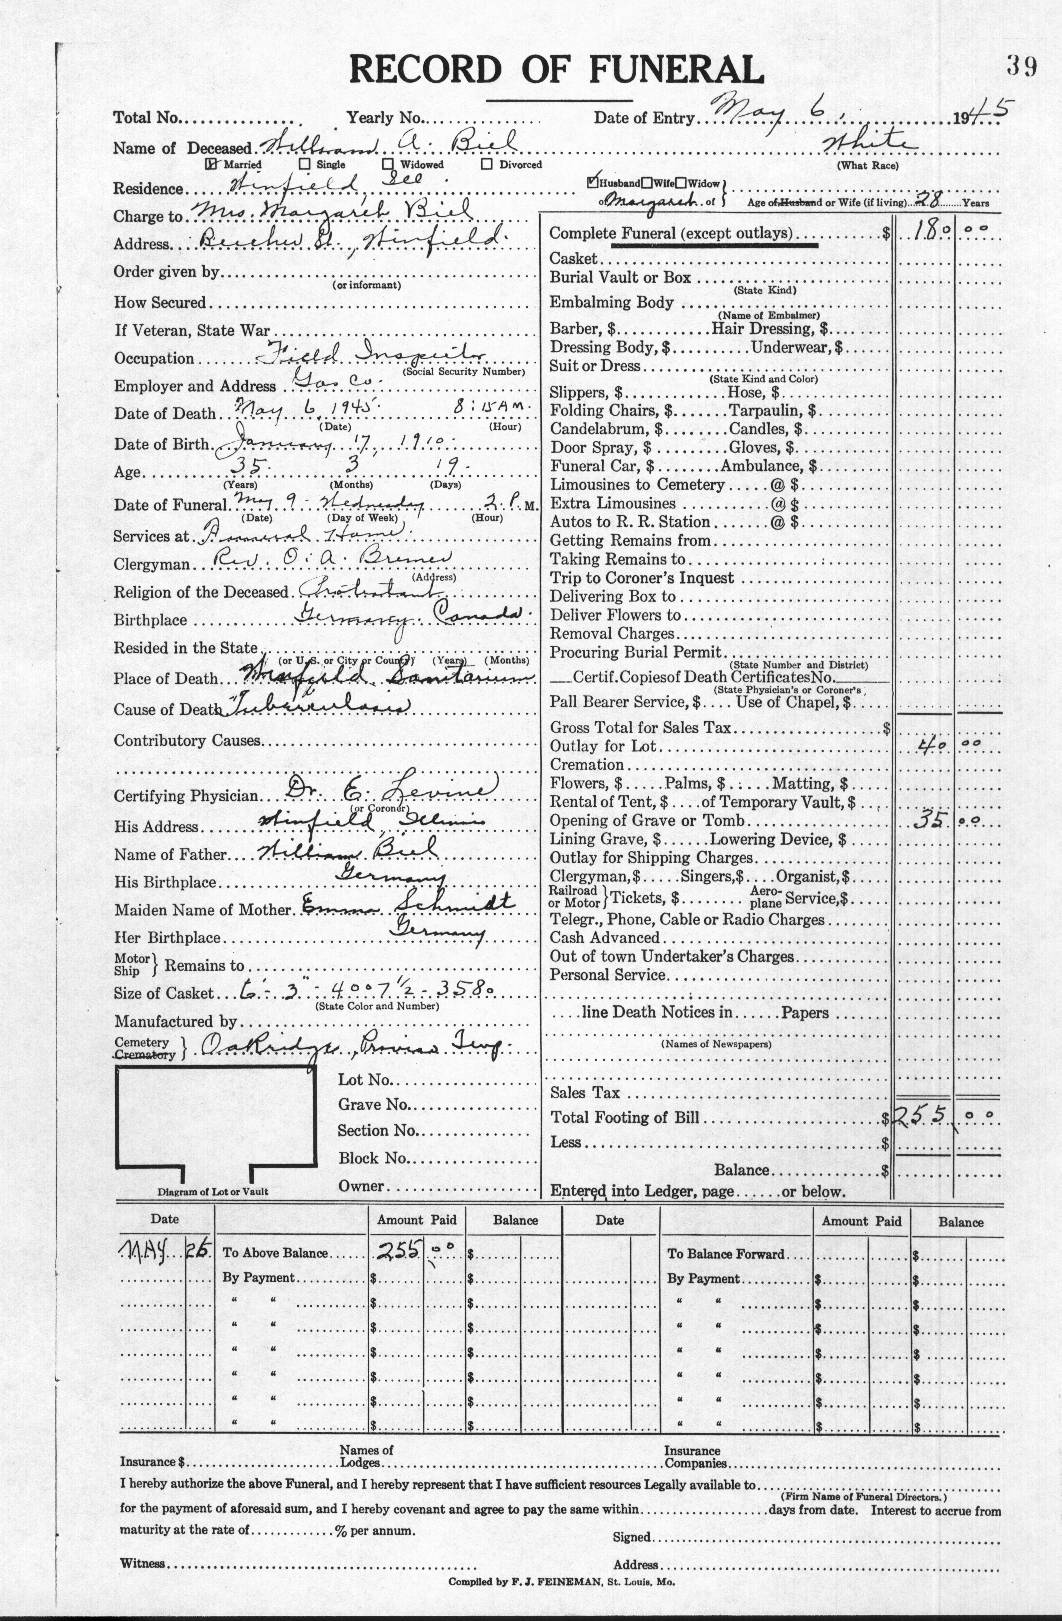 RECORD OF FUNERAL
39
Total No. Yearly No. Date of Entry May 6, 1945
Name of Deceased William A. Biel White
☑ Married ☐ Single ☐ Widowed ☐ Divorced (What Race)
Residence Winfield, Ill.
☑ Husband ☐ Wife ☐ Widow } of Margaret of } Age of Husband or Wife (if living) 28 Years
Charge to Mrs. Margaret Biel
Address Beecher St., Winfield.
Order given by
(or informant)
How Secured
If Veteran, State War
Occupation Field Inspector
(Social Security Number)
Employer and Address Gas Co.
Date of Death May 6, 1945 8:15 AM.
(Date) (Hour)
Date of Birth January 17, 1910.
Age 35 3 19.
(Years) (Months) (Days)
Date of Funeral May 9 - Wednesday 2 P. M.
(Date) (Day of Week) (Hour)
Services at Funeral Home.
Clergyman Rev. O. A. Bremer
(Address)
Religion of the Deceased Protestant
Birthplace Germany. Canada.
Resided in the State
(or U. S. or City or County) (Years) (Months)
Place of Death Winfield Sanitarium
Cause of Death Tuberculosis
Contributory Causes
Certifying Physician Dr. E. Levine
(or Coroner)
His Address Winfield, Illinois
Name of Father William Biel
His Birthplace Germany
Maiden Name of Mother Emma Schmidt
Her Birthplace Germany
Motor Ship } Remains to
Size of Casket 6' - 3" - 4007 1/2 - 3580
(State Color and Number)
Manufactured by
Cemetery Crematory } Oakridge, Proviso Twp.
Lot No.
Grave No.
Section No.
Block No.
Owner
Diagram of Lot or Vault
Complete Funeral (except outlays) $ 180 00
Casket
Burial Vault or Box
(State Kind)
Embalming Body
(Name of Embalmer)
Barber, $ Hair Dressing, $
Dressing Body, $ Underwear, $
Suit or Dress
(State Kind and Color)
Slippers, $ Hose, $
Folding Chairs, $ Tarpaulin, $
Candelabrum, $ Candles, $
Door Spray, $ Gloves, $
Funeral Car, $ Ambulance, $
Limousines to Cemetery @ $
Extra Limousines @ $
Autos to R. R. Station @ $
Getting Remains from
Taking Remains to
Trip to Coroner's Inquest
Delivering Box to
Deliver Flowers to
Removal Charges
Procuring Burial Permit
(State Number and District)
Certif. Copies of Death Certificates No.
(State Physician's or Coroner's)
Pall Bearer Service, $ Use of Chapel, $
Gross Total for Sales Tax $
Outlay for Lot 40 00
Cremation
Flowers, $ Palms, $ Matting, $
Rental of Tent, $ of Temporary Vault, $
Opening of Grave or Tomb 35 00
Lining Grave, $ Lowering Device, $
Outlay for Shipping Charges
Clergyman, $ Singers, $ Organist, $
Railroad or Motor } Tickets, $ Aero-plane Service, $
Telegr., Phone, Cable or Radio Charges
Cash Advanced
Out of town Undertaker's Charges
Personal Service
line Death Notices in Papers
(Names of Newspapers)
Sales Tax
Total Footing of Bill $ 255 00
Less $
Balance $
Entered into Ledger, page or below.
Date Amount Paid Balance Date Amount Paid Balance
MAY 25 To Above Balance 255 00 $ To Balance Forward $
By Payment $ $ By Payment $ $
" " $ $ " " $ $
" " $ $ " " $ $
" " $ $ " " $ $
" " $ $ " " $ $
" " $ $ " " $ $
" " $ $ " " $ $
Insurance $ Names of Lodges Insurance Companies
I hereby authorize the above Funeral, and I hereby represent that I have sufficient resources Legally available to
(Firm Name of Funeral Directors.)
for the payment of aforesaid sum, and I hereby covenant and agree to pay the same within days from date. Interest to accrue from
maturity at the rate of % per annum.
Signed
Witness Address
Compiled by F. J. FEINEMAN, St. Louis, Mo.